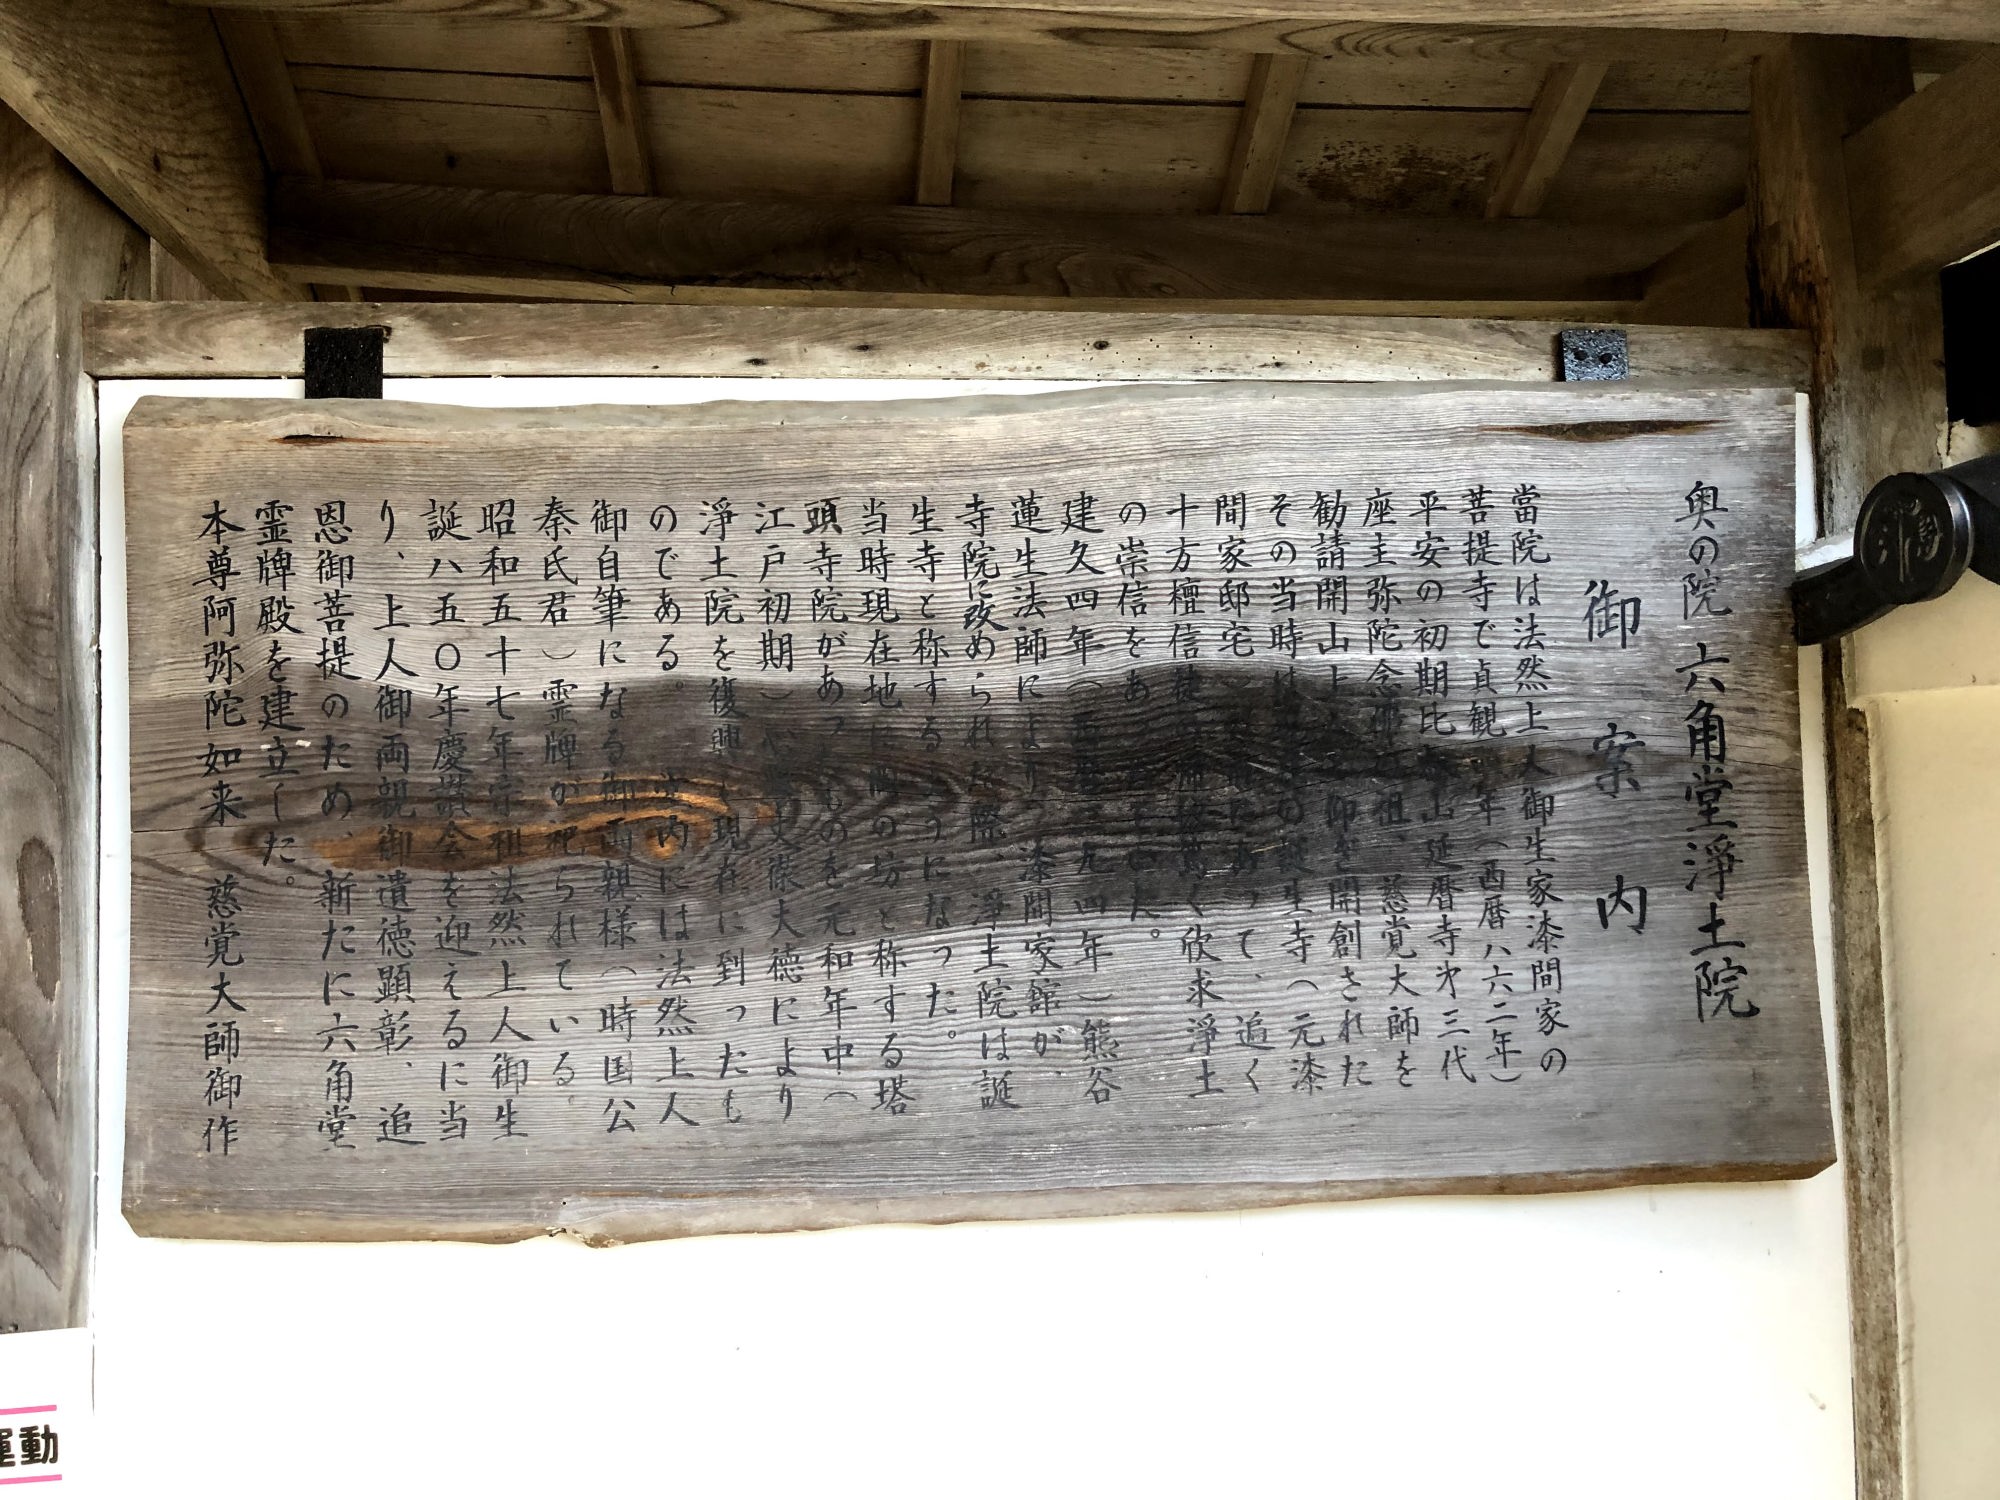 奥の院 六角堂淨土院
御案内
當院は法然上人御生家漆間家の
菩提寺で貞観 年(西暦八六二年)
平安の初期比叡山延暦寺才三代
座主弥陀念佛 祖、慈覚大師を
勧請開山上人と仰ぎ開創された
その当時は 誕生寺(元漆
間家邸宅) にあって、遍く
十方檀信徒 く欣求淨土
の崇信をあ た。
建久四年(西暦一一九四年)熊谷
蓮生法師により、漆間家館が、
寺院に改められた際、淨土院は誕
生寺と称するようになった。
当時現在地に の坊と称する塔
頭寺院があったものを元和年中(
江戸初期) 大徳により
淨土院を復興し現在に到ったも
のである。 堂内には法然上人
御自筆になる御両親様(時国公
秦氏君)霊牌が祀られている。
昭和五十七年宗祖法然上人御生
誕八五〇年慶讃会を迎えるに当
り、上人御両親御遺徳顕彰、追
恩御菩提のため、新たに六角堂
霊牌殿を建立した。
本尊阿弥陀如来 慈覚大師御作
運動